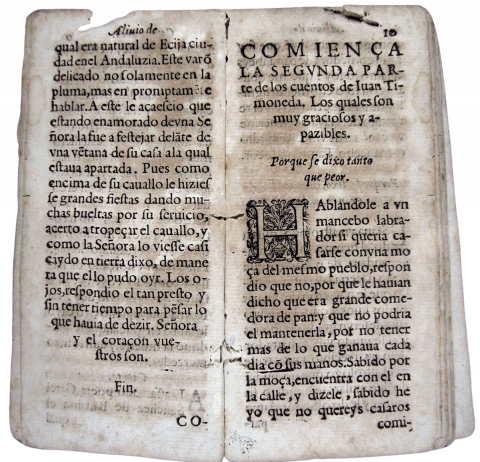 Aliuio de
qual era natural de Ecija ciu-
dad en el Andaluzia. Este varō
delicado no solamente en la
pluma, mas en promptam̄ e
hablar. A este le acaescio que
estando enamorado de vna Se
ñora la fue a festejar delāte de
vna vētana de su casa ala qual
estaua apartada. Pues como
encima de su cauallo le hizies
se grandes fiestas dando mu-
chas bueltas por su seruicio,
acerto a tropeçar el cauallo, y
como la Señora lo viesse casi
caydo en tierra dixo, de mane
ra que el lo pudo oyr. Los o-
jos, respondio el tan presto y
sin tener tiempo para pēsar lo
que hauia de dezir, Señora
y el coraçon vue-
stros son.
Fin.
CO-
10
COMIENÇA
LA SEGVNDA PAR-
te de los cuentos de Iuan Ti-
moneda. Los quales son
muy graciosos y a-
pazibles.
Porque se dixo tanto
que peor.
HAblandole a vn
mancebo labra-
dor si queria ca-
sarse con vna mo
ça del mesmo pueblo, respon
dio que no, por que le hauian
dicho que era grande come-
dora de pan: y que no podria
el mantenerla, por no tener
mas de lo que ganaua cada
dia cō sus manos. Sabido por
la moça, encuentra con el en
la calle, y dizele, sabido he
yo que no quereys casaros
comi-